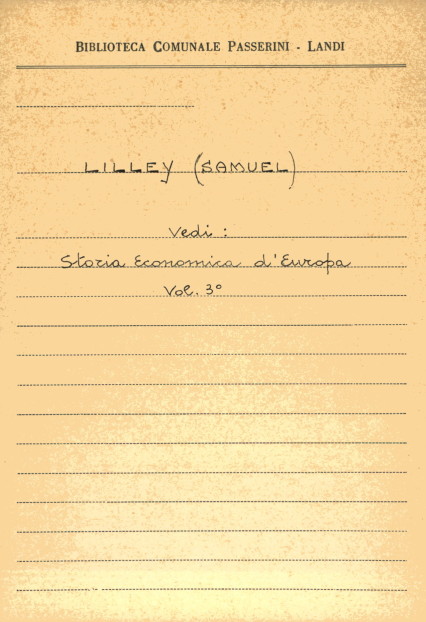 BIBLIOTECA COMUNALE PASSERINI - LANDI
LILLEY (SAMUEL)
Vedi :
Storia Economica d'Europa
Vol. 3°